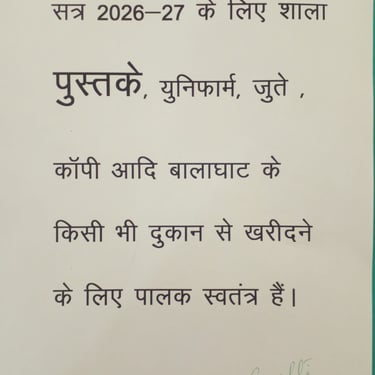 सत्र 2026–27 के लिए शाला
पुस्तके, युनिफार्म, जुते ,
कॉपी आदि बालाघाट के
किसी भी दुकान से खरीदने
के लिए पालक स्वतंत्र हैं।